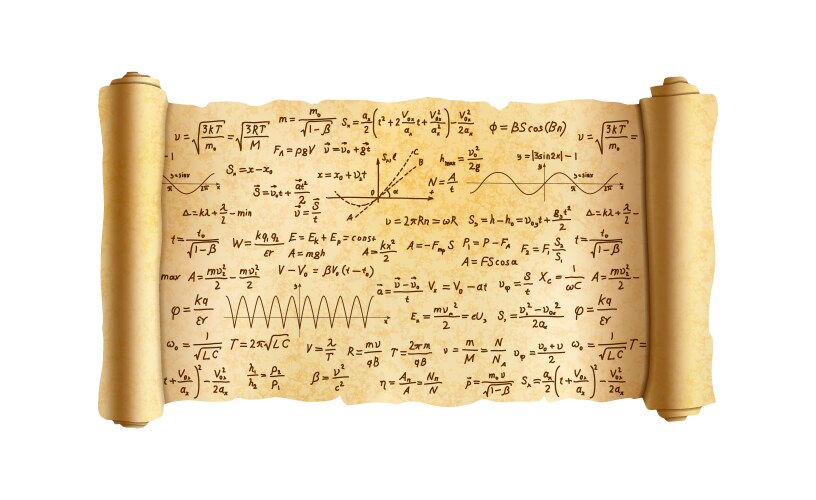 υ=√(3kT/m₀)=√(3RT/M) m=m₀/√(1-β) Sₓ=aₓ/2(t²+2V₀ₓ/aₓ t+V₀ₓ²/aₓ²)-V₀ₓ²/2aₓ ϕ=BScos(Bn) υ=√(3kT/m₀)=
-1 F_A=ρgV v⃗=v⃗₀+g⃗t S,м C B h_max=υ₀²/2g y=|3sin2x|-1
y=sinx π 2π x Sₓ=x-x₀ x=x₀+υₓt 0 α t N=A/t y=sinx π 2π x
S⃗=υ⃗₀t+a⃗t²/2 υ⃗=S⃗/t A
Δ=kλ+λ/2-min υ=2πRn=ωR Δ=kλ+λ/2-
t=t₀/√(1-β) W=kq₁q₂/εr E=Eₖ+Eₚ=const A=mgh A=kx²/2 P₁=P-F_A F₂=F₁S₂/S₁ t=t₀/√(1-β)
A=FScosα
max A=mυ₂²/2-mυ₁²/2 V-V₀=βV₀(t-t₀) a⃗=(υ⃗-υ⃗₀)/t Vₓ=V₀-at υ_φ=S/t X_C=1/ωC A=mυ₂²/2-
φ=kq/εr y x Sₓ=(υₓ²-υ₀ₓ²)/2aₓ φ=kq/εr
ω₀=1/√LC T=2π√LC V=λ/T R=mυ/qB T=2πm/qB ν=m/M=N/N_A υ_φ=(υ₀+υ)/2 ω₀=1/√LC T=
(t+V₀ₓ/aₓ)²-V₀ₓ²/2aₓ h₁/h₂=ρ₂/ρ₁ β=υ²/c² η=Aₙ/A=Nₙ/N p⃗=m₀υ/√(1-β) Sₓ=aₓ/2(t+V₀ₓ/aₓ)²-V₀ₓ²/2aₓ